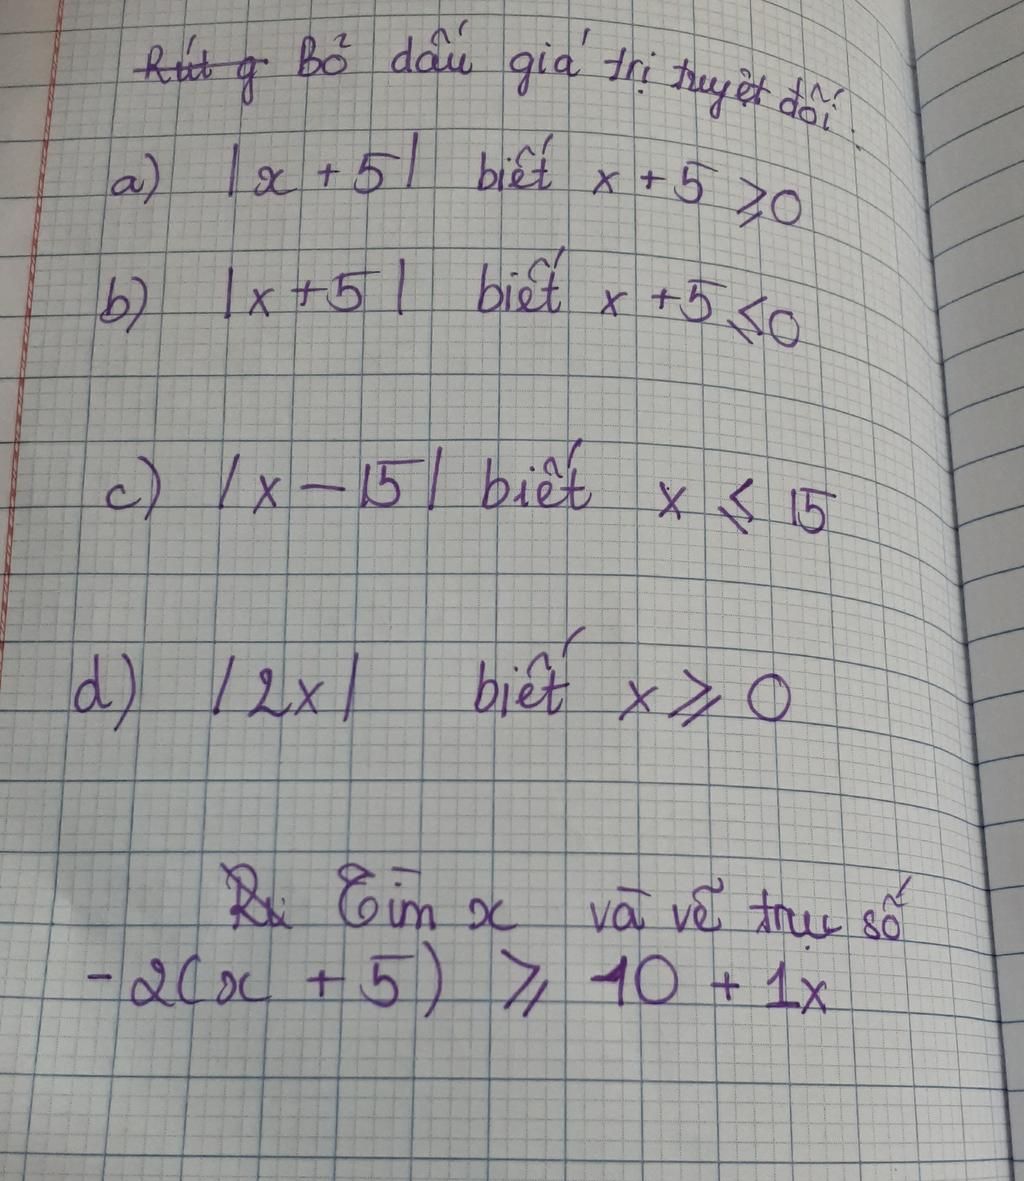 Rút g Bỏ dấu giá trị tuyệt đối.
a) |x + 5| biết x + 5 ⩾ 0
b) |x + 5| biết x + 5 ⩽ 0
c) |x - 15| biết x ⩽ 15
d) |2x| biết x ⩾ 0
Tìm x và vẽ trục số
-2(x + 5) ⩾ 10 + 1x